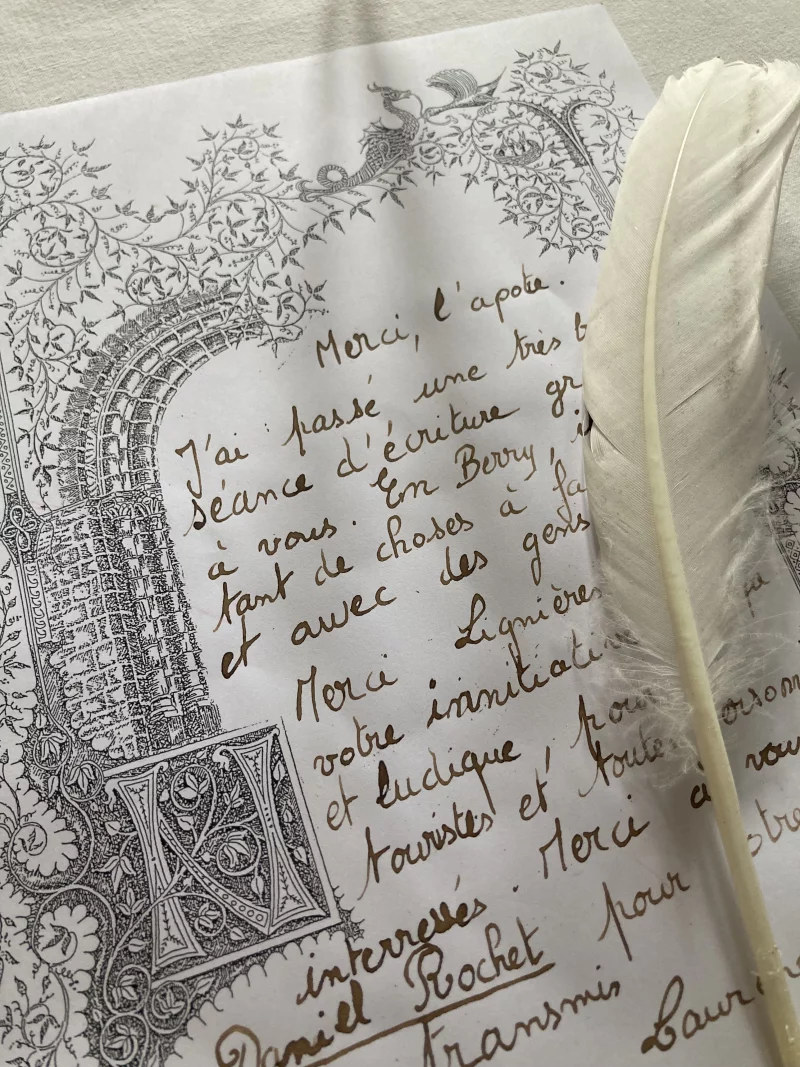 Merci, l'apote.
J'ai passé une très b
séance d'écriture gr
à vous. En Berry, i
tant de choses à fa
et avec des gens
Merci Lignières
votre innitiative
et ludique, pour
touristes et toutes
interressés. Merci à vous
Daniel Rochet pour
transmis
N